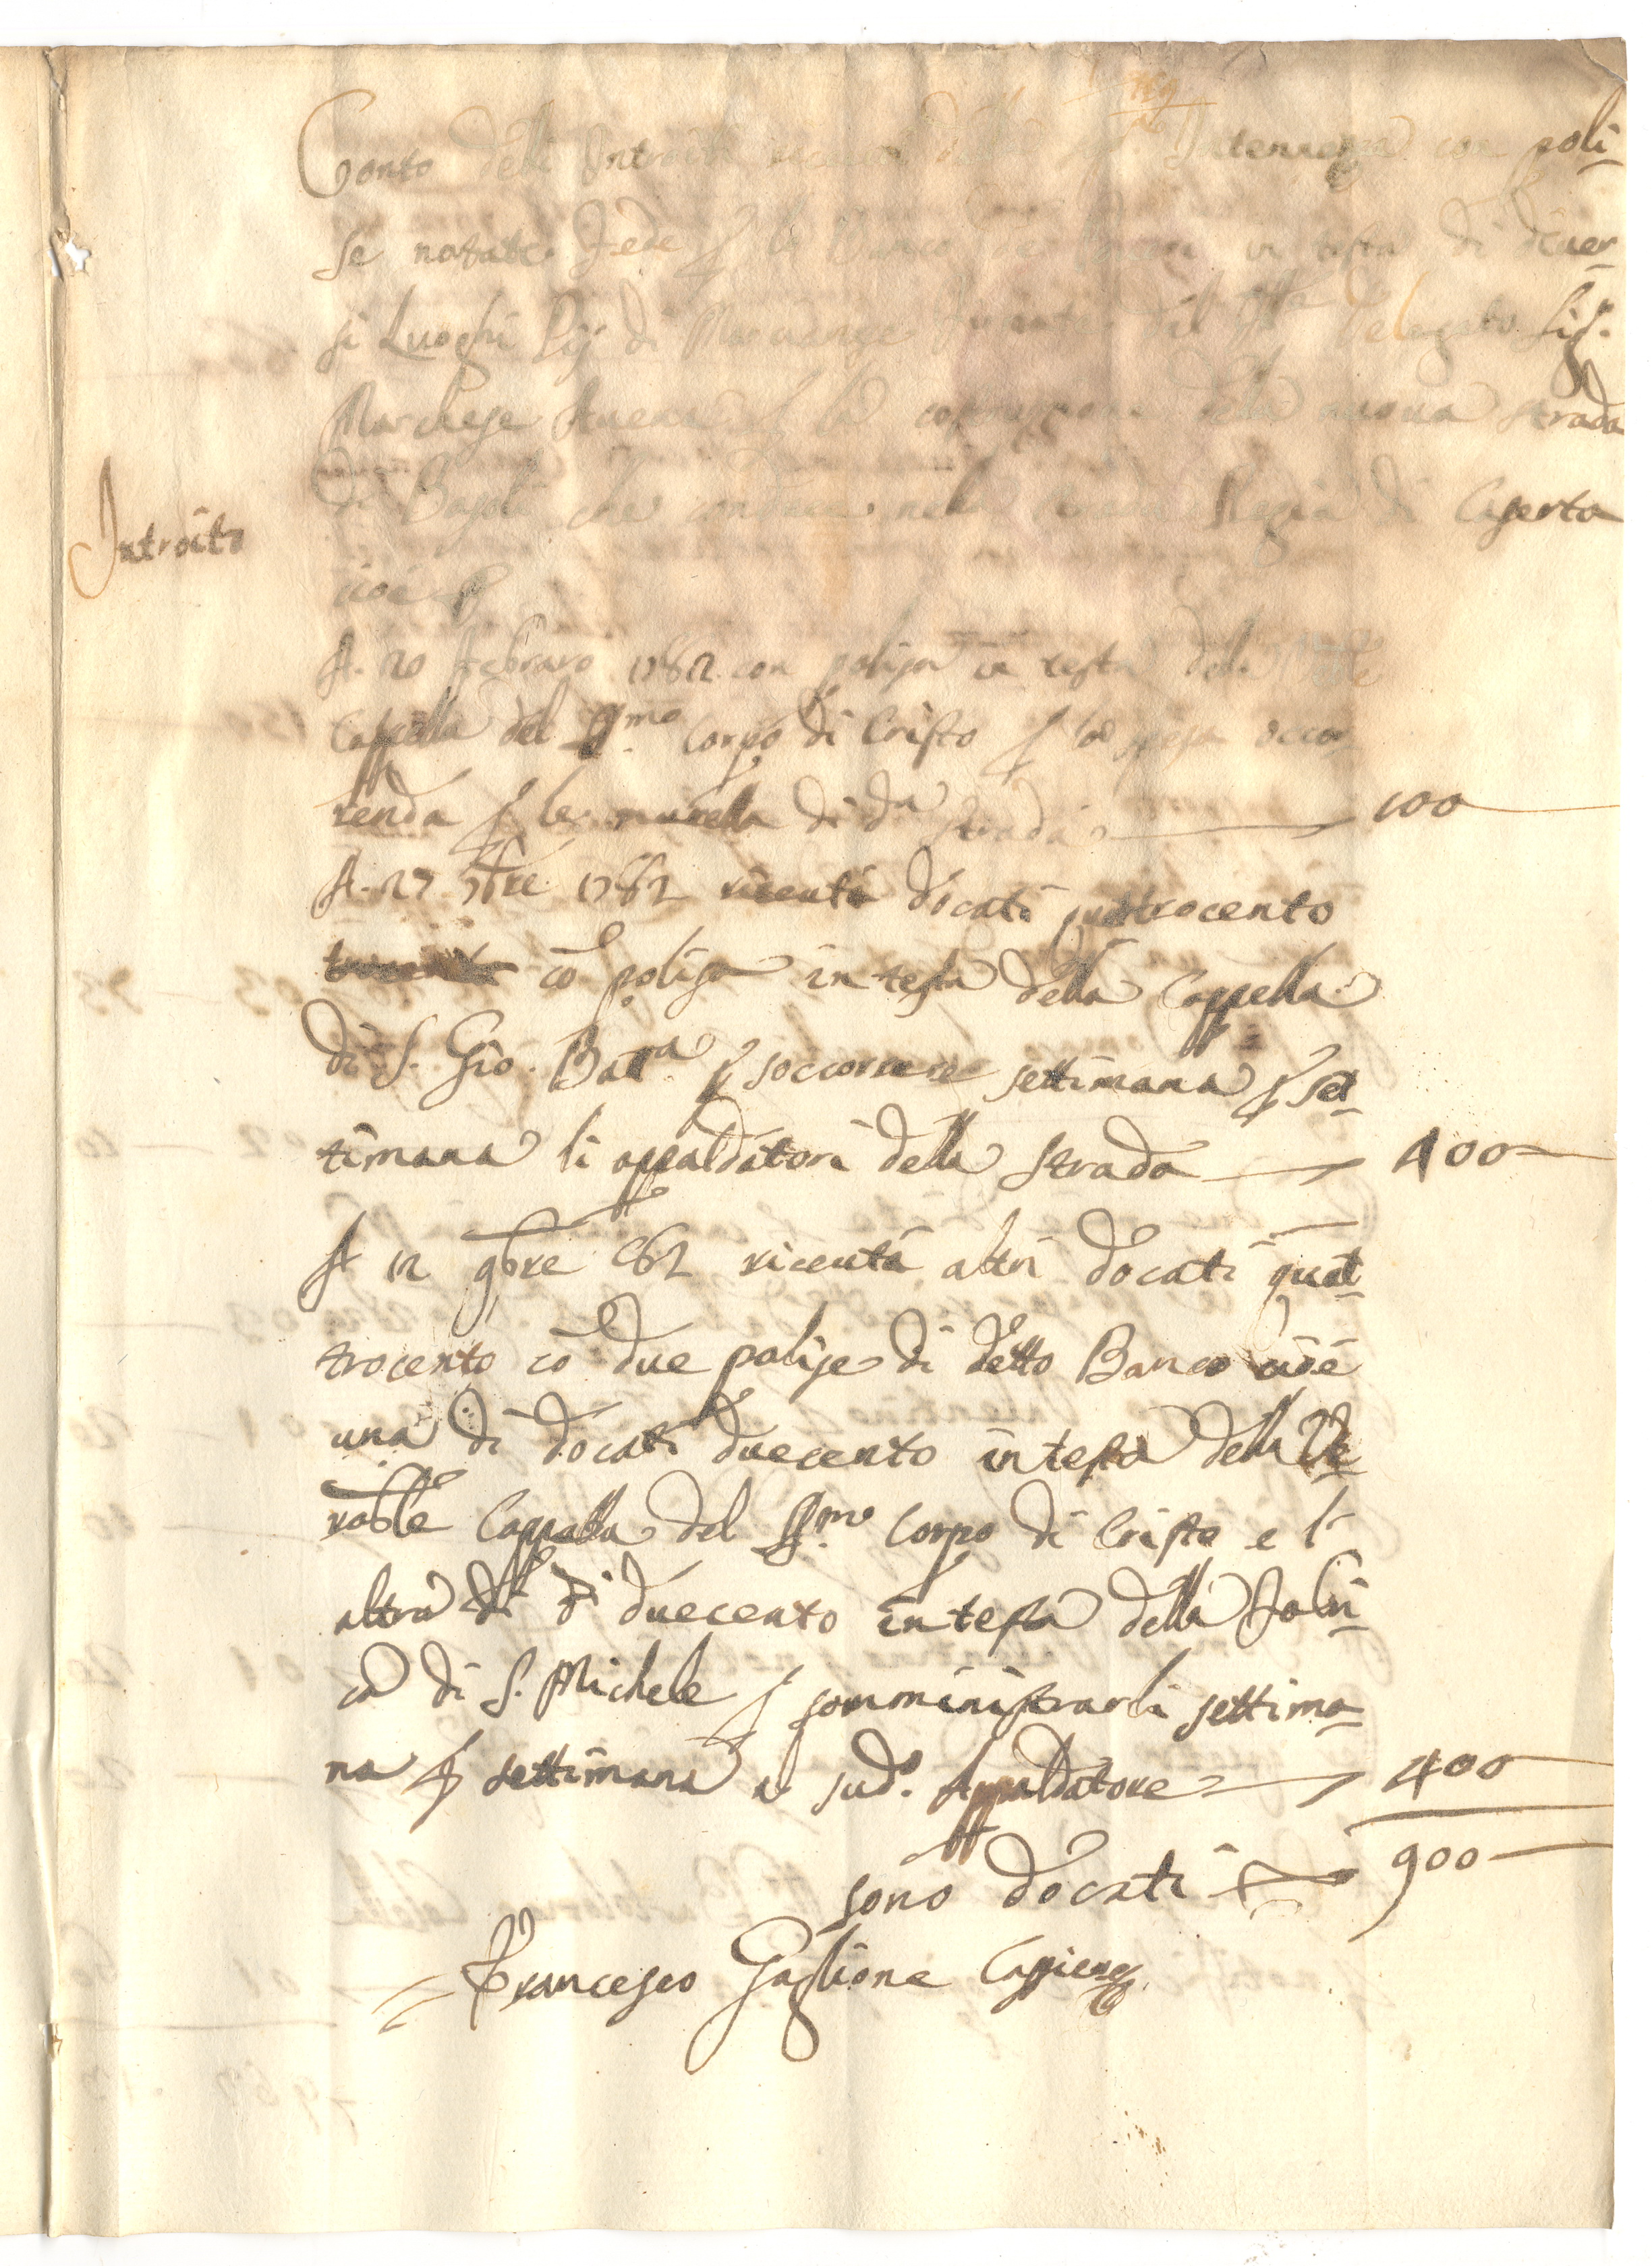 Conto delli Introiti con poli-
se notate fede in testa di diver-
si Luoghi Pij di Delegato Sig.r
Marchese della nuova strada
di che Regia di Caserta
Introito
cioè
A. 20 Febraro 1762 con polisa in testa della
Cappella del SS.mo Corpo di Cristo p la spesa occor-
renda p le murella di d.a strada 100
A. 27 7bre 1762 ricevuti docati quattrocento
cō polisa in testa della Cappella
di S. Gio. Batt.a p soccorrere settimana p set-
timana li appaldatori della strada 400
A 12 9bre 762 ricevuti altri docati quat-
trocento cō due polise di detto Banco cioè
una di docati duecento in testa della Ve-
rable Cappella del SS.mo Corpo di Cristo e l'
altra di d.i duecento in testa della Fabri-
ca di S. Michele p somministrarli settima-
na p settimana a sud.o Appaldatore 400
sono docati 900
Francesco Gaglione